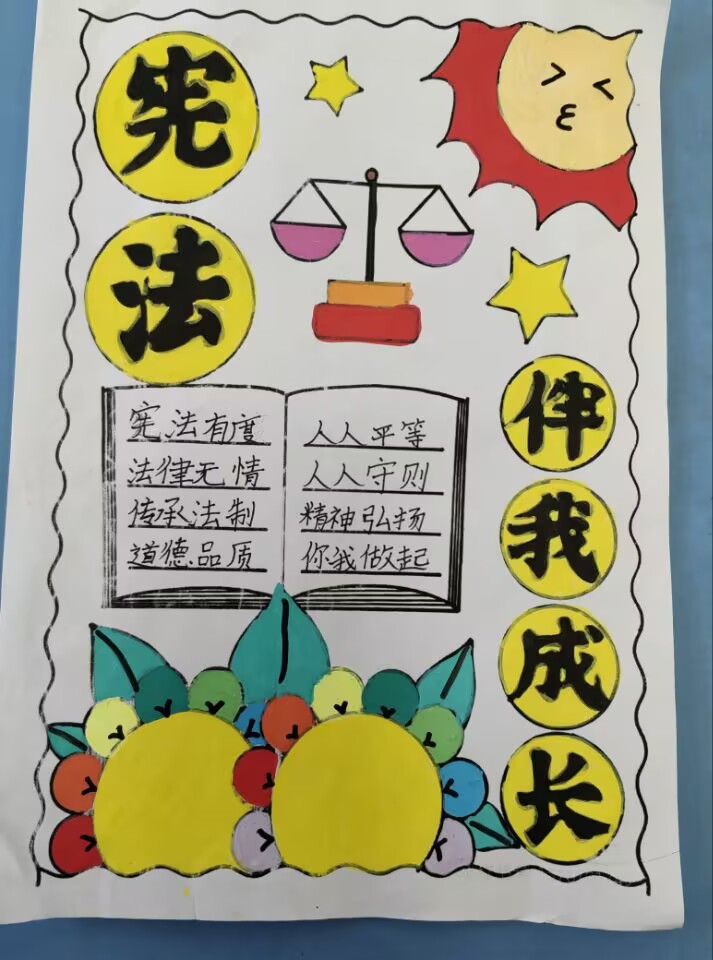 宪
法
伴
我
成
长
宪法有度
法律无情
传承法制
道德品质
人人平等
人人守则
精神弘扬
你我做起